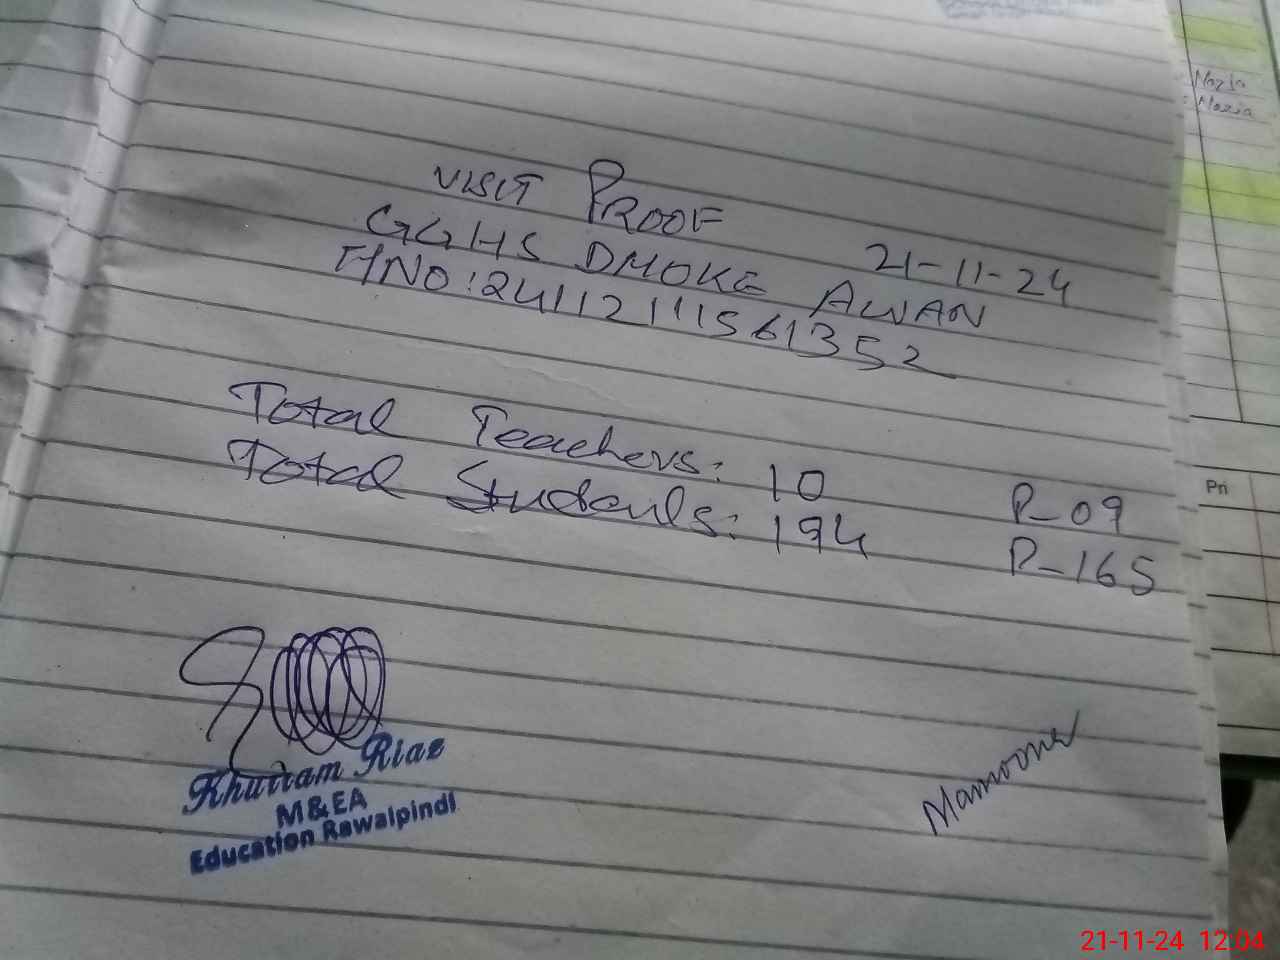 VISIT PROOF
21-11-24
GGHS DHOKE AWAN
HNO:241121111561352
Total Teachers: 10 P-09
Total Students: 194 P-165
Khurram Riaz
M&EA
Education Rawalpindi
Mamoona
Nazia
Pri
21-11-24 12:04